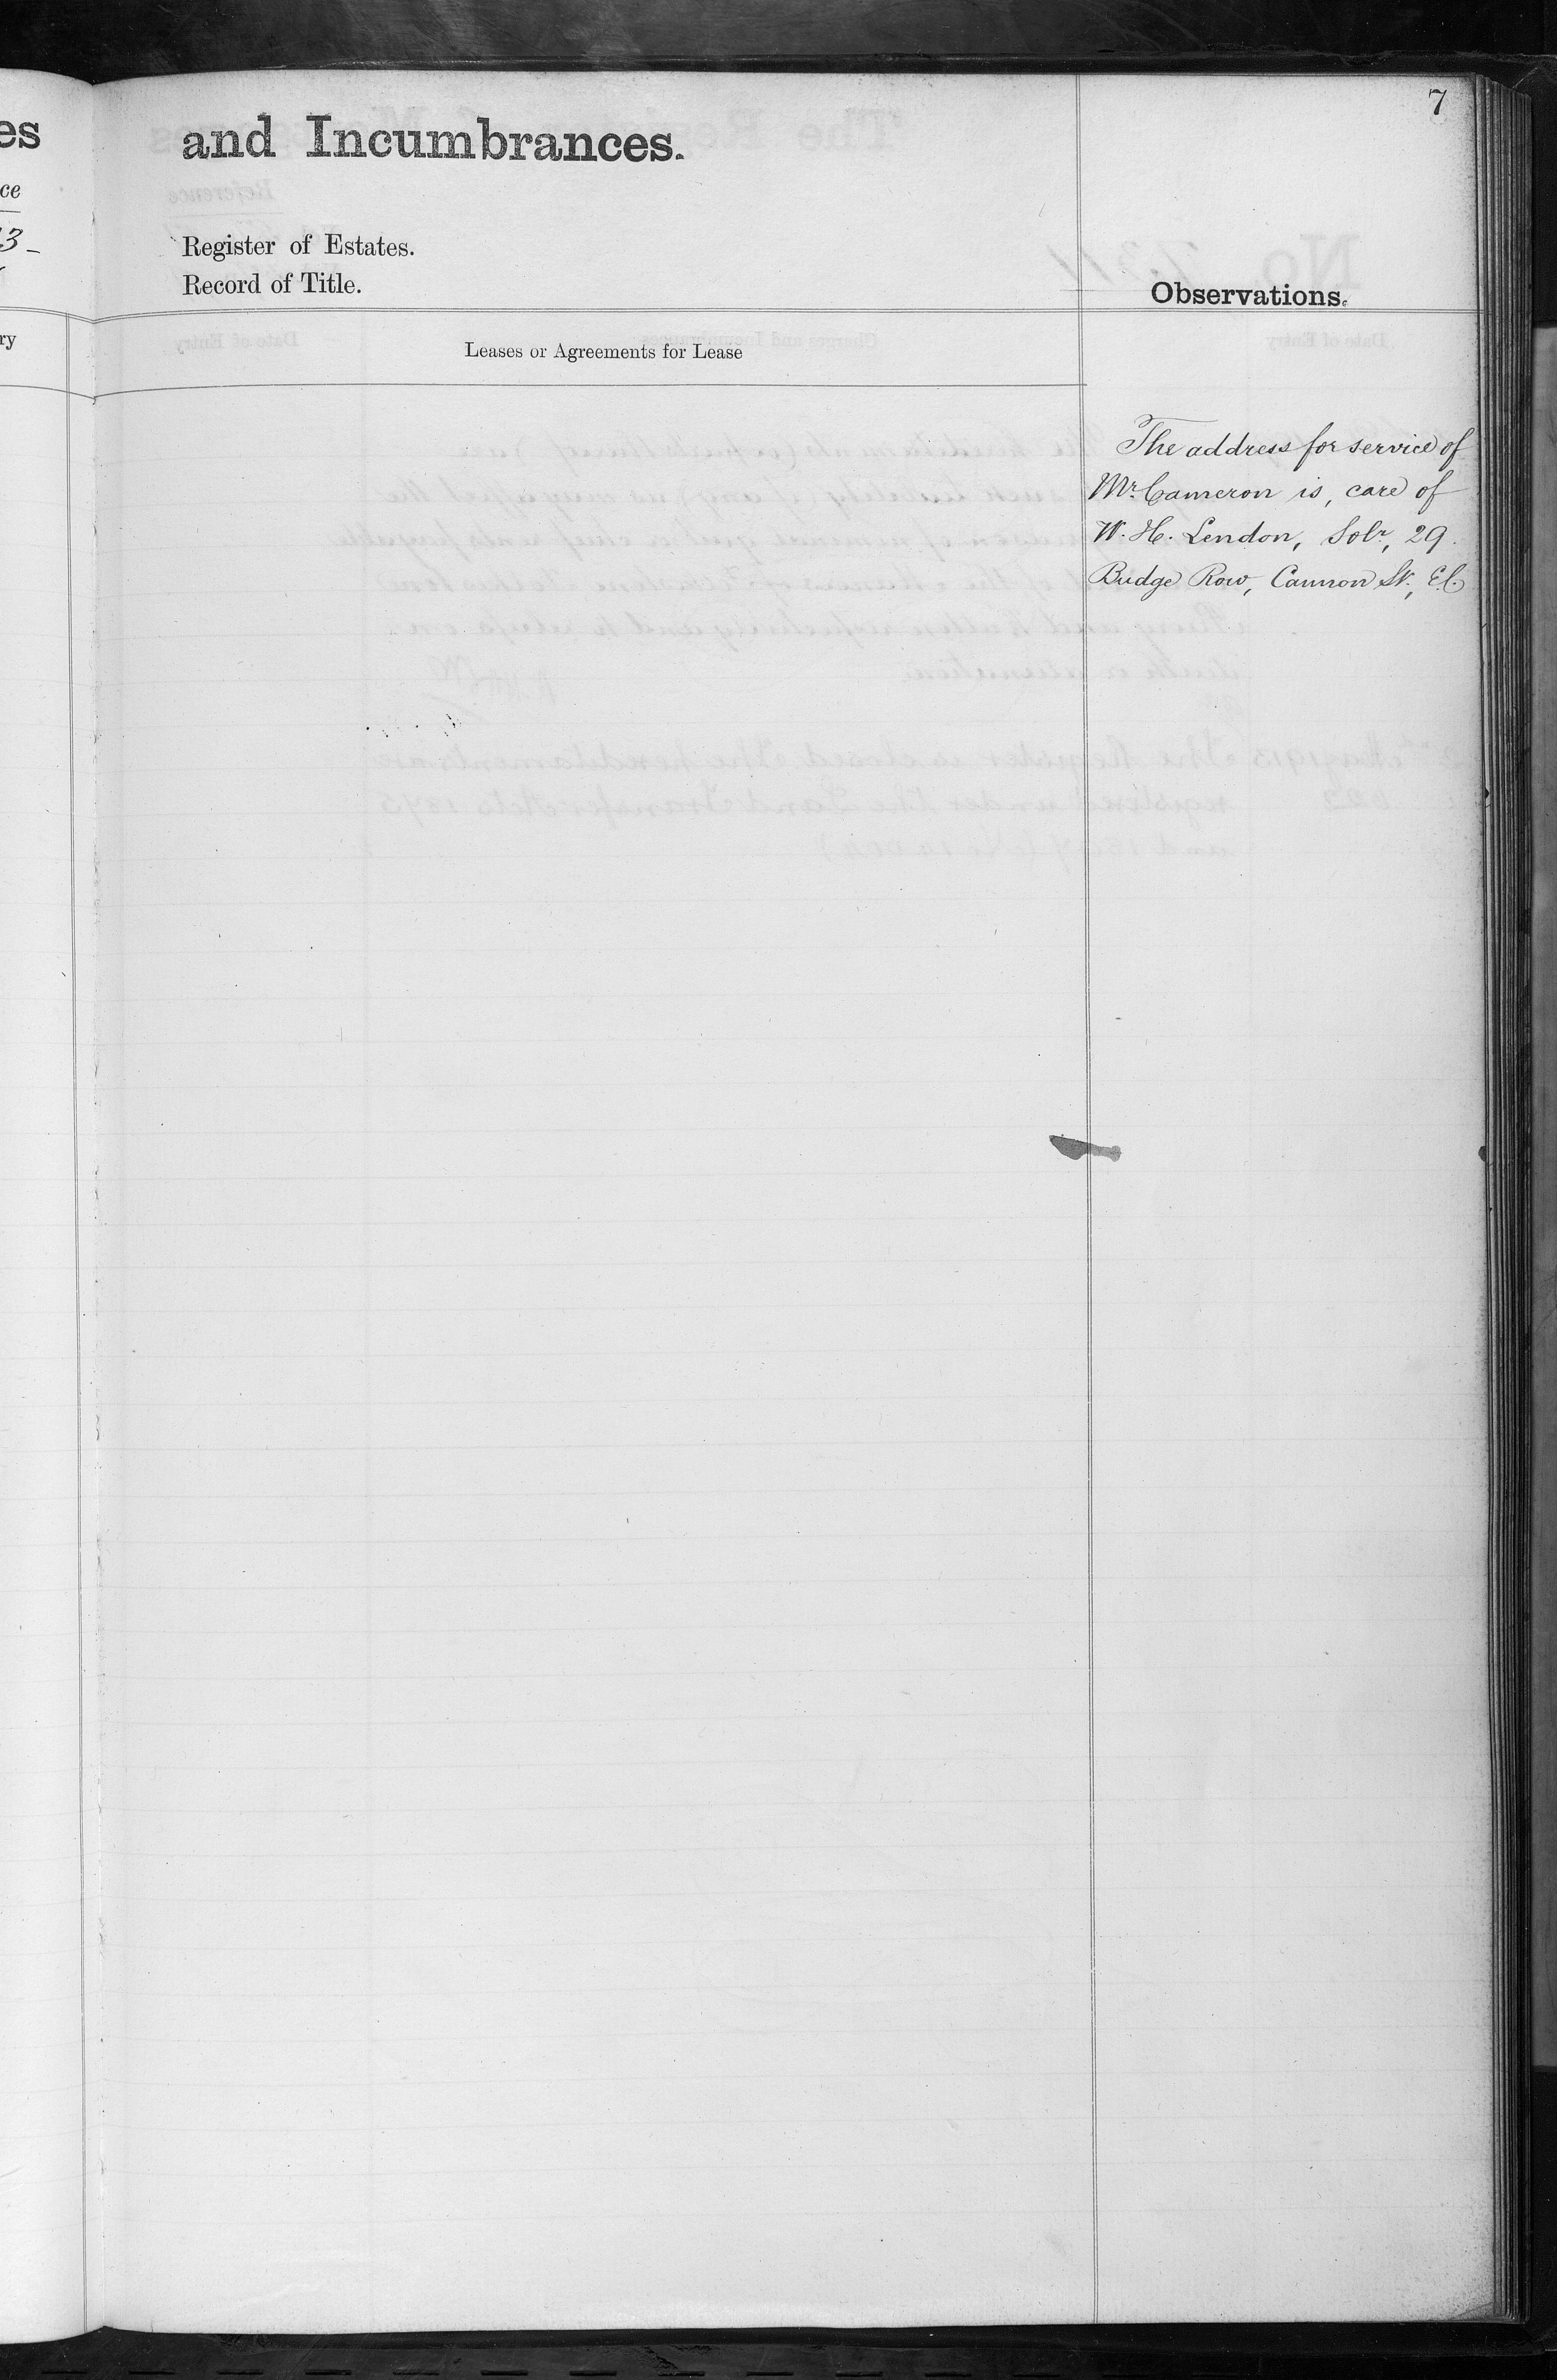 7
and Incumbrances.
Register of Estates.
Record of Title.
Observations.
Leases or Agreements for Lease
The address for service of
Mr. Cameron is, care of
W. H. Lendon, Solr, 29
Budge Row, Cannon St., E.C.